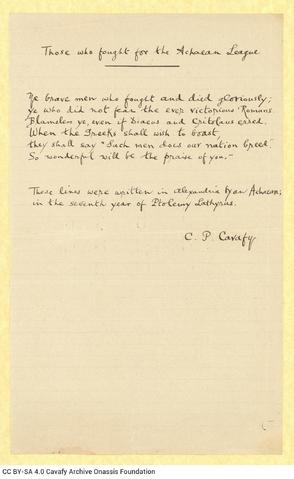 Those who fought for the Achaean League
Ye brave men who fought and died gloriously;
ye who did not fear the ever victorious Romans.
Blameless ye, even if Diaeus and Critolaus erred.
When the Greeks shall wish to boast,
they shall say "Such men does our nation breed."
So wonderful will be the praise of you.—
These lines were written in Alexandria by an Achaean;
in the seventh year of Ptolemy Lathyrus.
C. P. Cavafy
CC BY-SA 4.0 Cavafy Archive Onassis Foundation